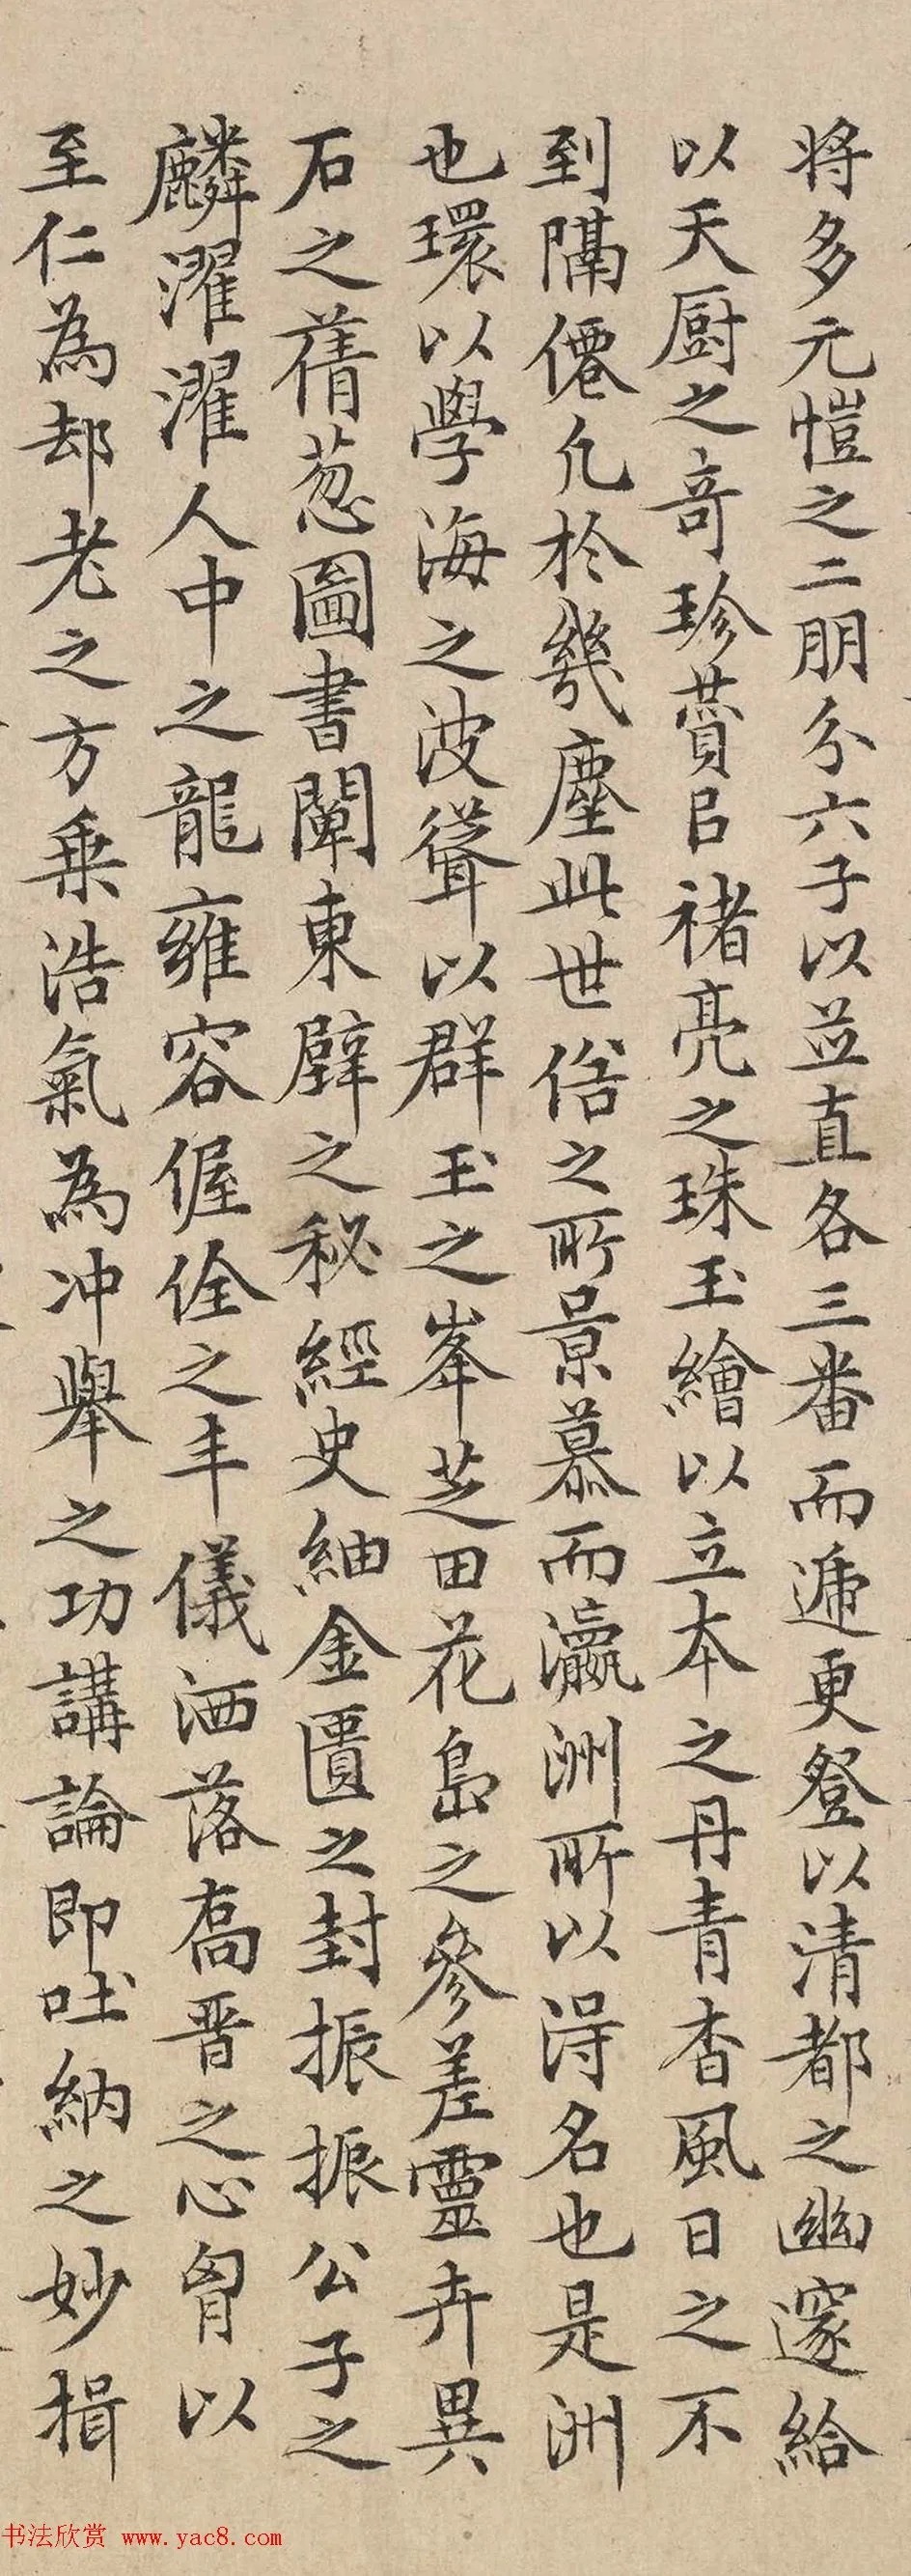 将多元愷之二朋分六子以並直各三番而遞更登以清都之幽邃給
以天厨之奇珍蕒㠯禇亮之珠玉繪以立本之丹青杳風日之不
到隔僊凡於幾塵此世俗之所景慕而瀛洲所以淂名也是洲
也環以學海之波聳以群玉之峯芝田花島之參差靈卉異
石之蒨葱圖書闡東壁之秘經史紬金匱之封振振公子之
麟濯濯人中之龍雍容偓佺之丰儀洒落喬晋之心胷以
至仁為却老之方乗浩氣為冲舉之功講論即吐納之妙揖
书法欣赏 www.yac8.com